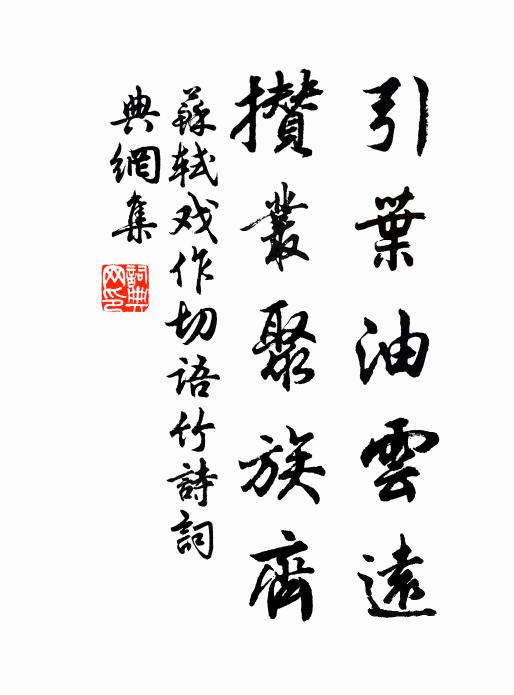 引葉油雲遠
攢叢聚族齊
蘇軾戏作切语竹詩詞
典網集
詞典網印